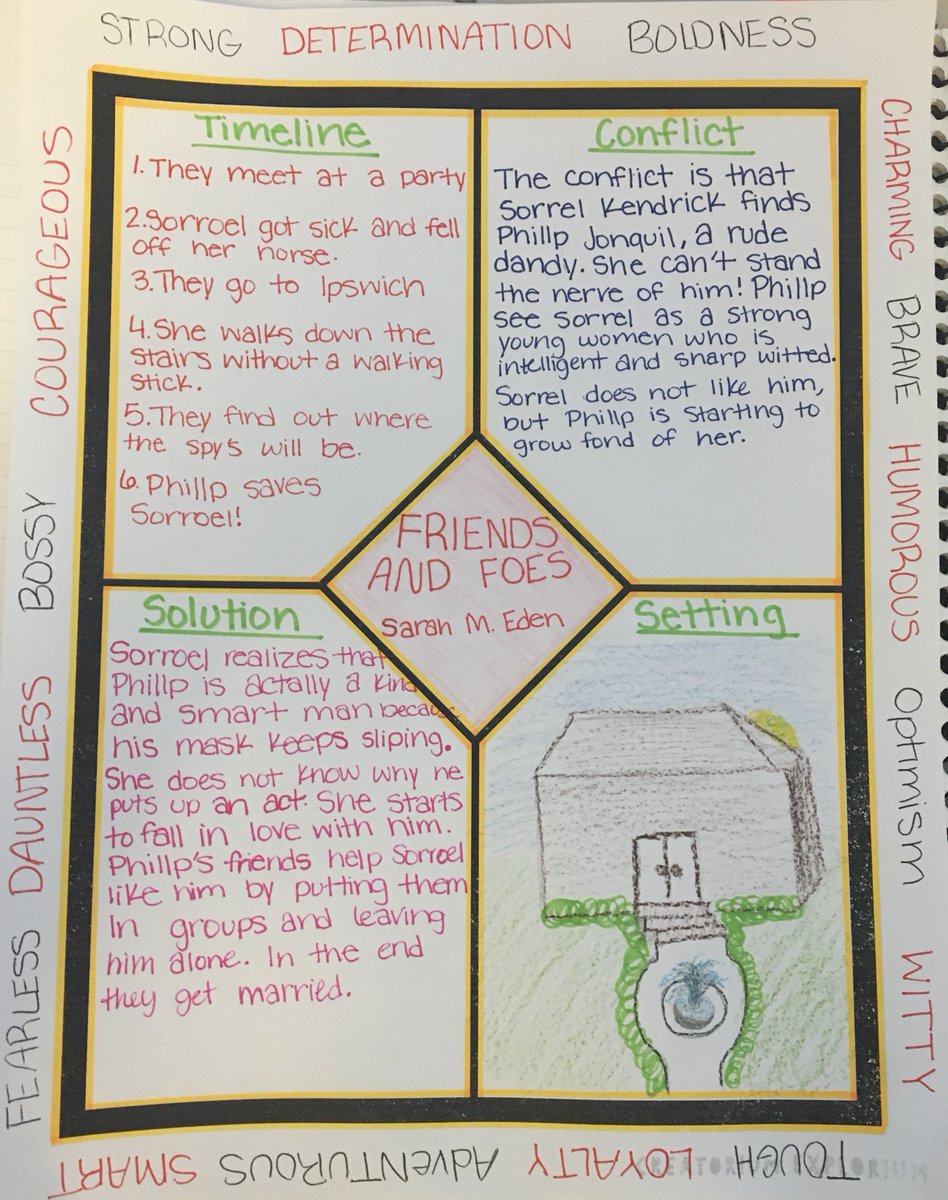 STRONG DETERMINATION BOLDNESS
Timeline
1. They meet at a party
2. Sorroel got sick and fell
off her horse.
3. They go to Ipswich
4. She walks down the
stairs without a walking
stick.
5. They find out where
the spy's will be.
6. Phillp saves
Sorroel!
Conflict
The conflict is that
Sorrel Kendrick finds
Phillp Jonquil, a rude
dandy. She can't stand
the nerve of him! Phillp
see Sorrel as a strong
young women who is
intelligent and sharp witted.
Sorrel does not like him,
but Phillp is starting to
grow fond of her.
FRIENDS
AND FOES
Sarah M. Eden
Solution
Sorroel realizes that
Phillp is actally a kind
and smart man becaus
his mask keeps sliping.
She does not know why he
puts up an act. She starts
to fall in love with him.
Phillp's friends help Sorroel
like him by putting them
In groups and leaving
him alone. In the end
they get married.
Setting
CHARMING BRAVE HUMOROUS OPTIMISM WITTY
TOUGH LOYALTY ADVENTUROUS SMART
FEARLESS DAUNTLESS BOSSY COURAGEOUS